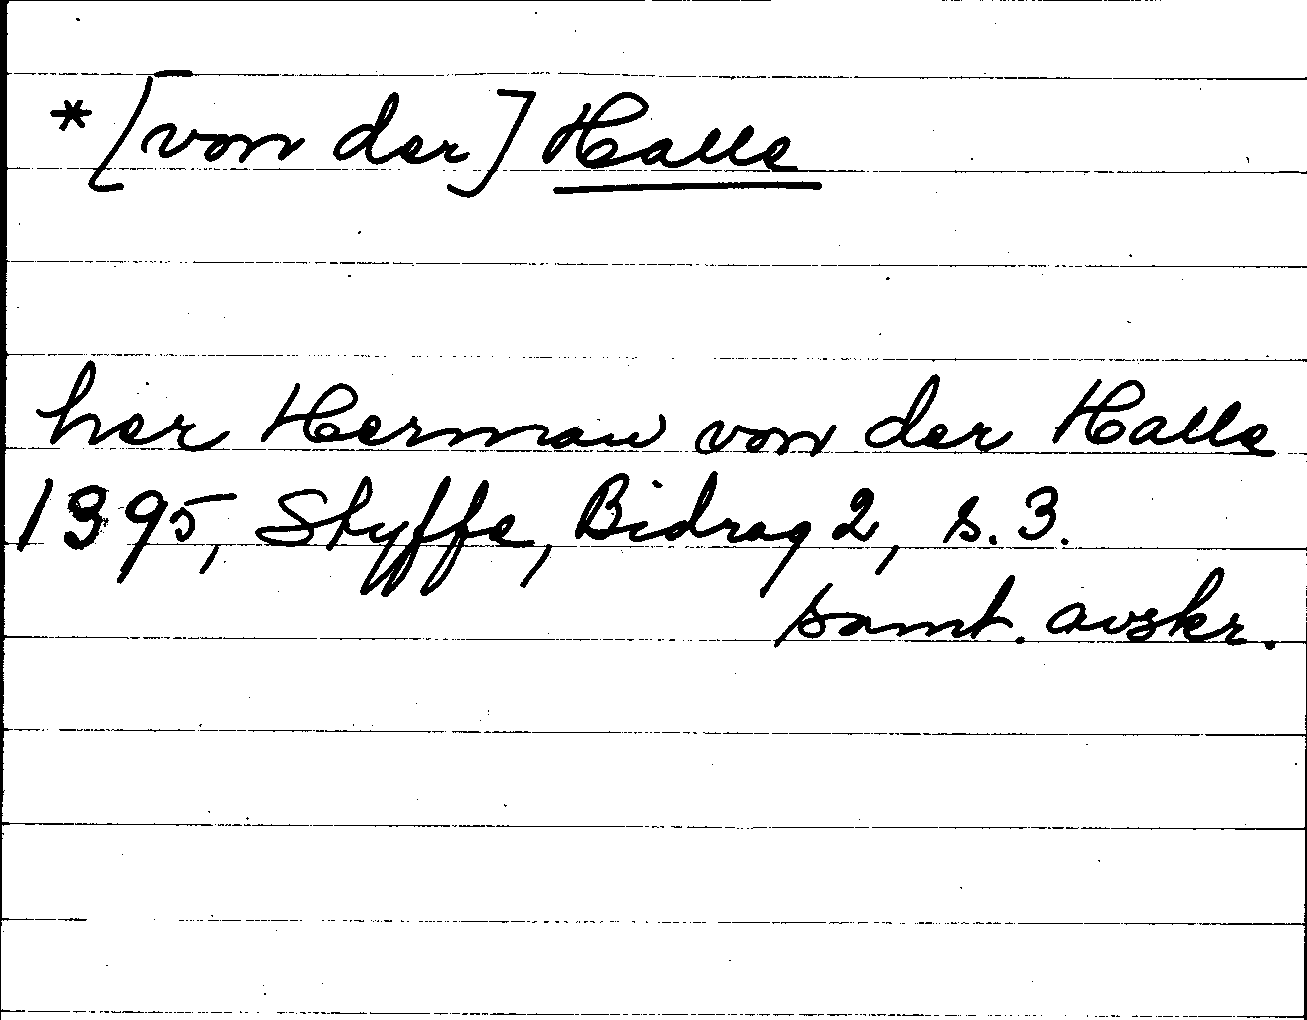 *[von der] Halle
her Herman von der Halle
1395, Styffe, Bidrag 2, s. 3.
samt. avskr.